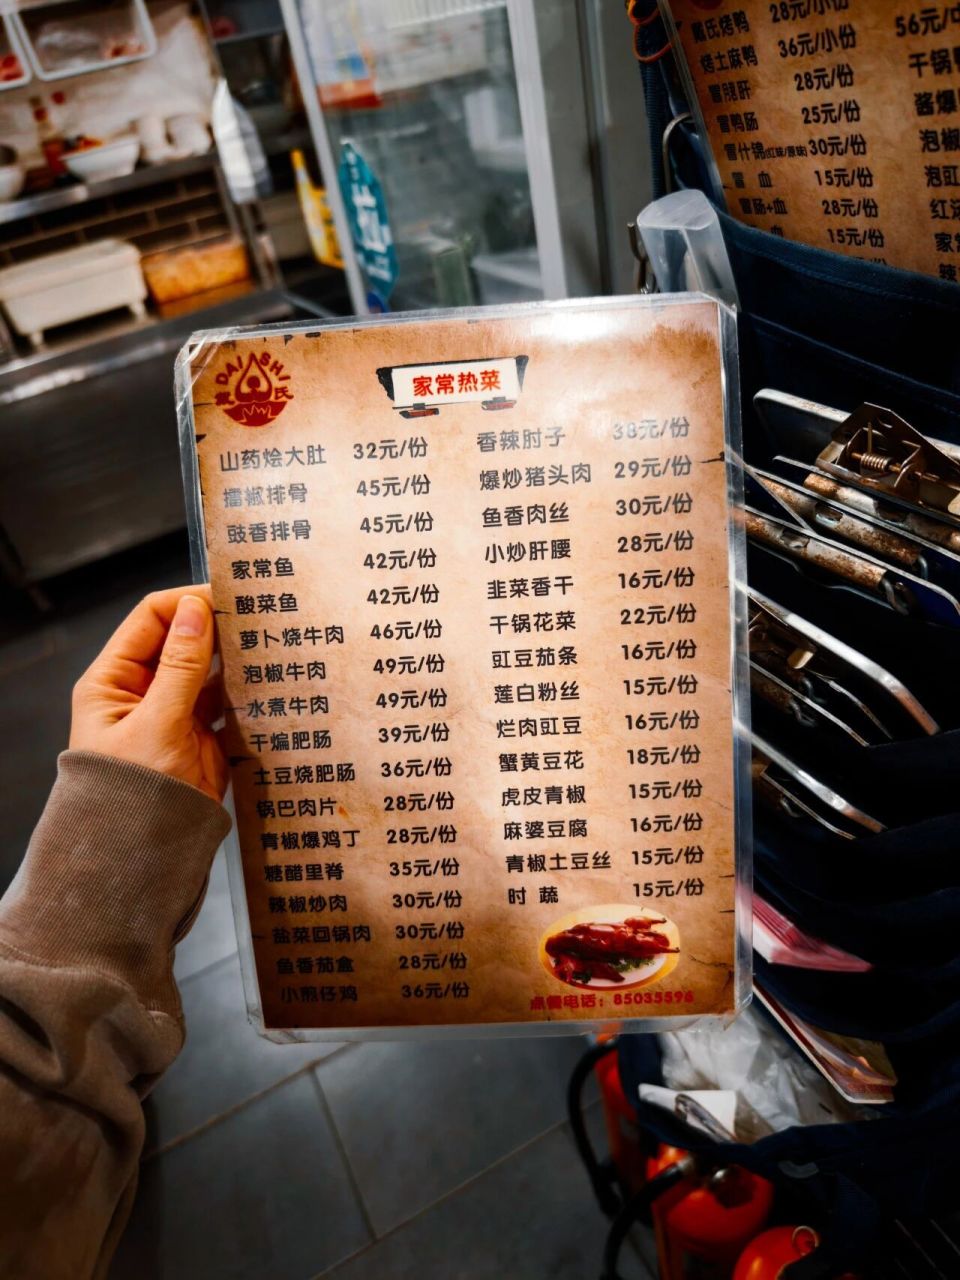 戴氏烤鸭 28元/小份
烤土麻鸭 36元/小份 56元/
冒腰肝 28元/份 干锅
冒鸭肠 25元/份 酱爆
冒什锦(红味/原味) 30元/份 泡椒
冒 血 15元/份 泡豇
冒肠+血 28元/份 红汤
血 15元/份 家常
DAI SHI
戴 氏
家常热菜
山药烩大肚 32元/份 香辣肘子 38元/份
擂椒排骨 45元/份 爆炒猪头肉 29元/份
豉香排骨 45元/份 鱼香肉丝 30元/份
家常鱼 42元/份 小炒肝腰 28元/份
酸菜鱼 42元/份 韭菜香干 16元/份
萝卜烧牛肉 46元/份 干锅花菜 22元/份
泡椒牛肉 49元/份 豇豆茄条 16元/份
水煮牛肉 49元/份 莲白粉丝 15元/份
干煸肥肠 39元/份 烂肉豇豆 16元/份
土豆烧肥肠 36元/份 蟹黄豆花 18元/份
锅巴肉片 28元/份 虎皮青椒 15元/份
青椒爆鸡丁 28元/份 麻婆豆腐 16元/份
糖醋里脊 35元/份 青椒土豆丝 15元/份
辣椒炒肉 30元/份 时 蔬 15元/份
盐菜回锅肉 30元/份
鱼香茄盒 28元/份
小煎仔鸡 36元/份
点餐电话：85035596